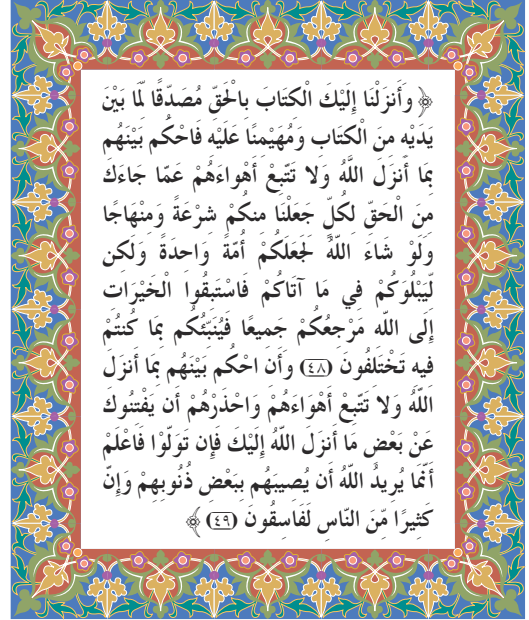 ﴿ وَأَنزَلْنَا إِلَيْكَ الْكتَابَ بِالْحَقّ مُصَدّقًا لّمَا بَيْنَ
يَدَيْه منَ الْكتَاب وَمُهَيْمنًا عَلَيْه فَاحْكُم بَيْنَهُم
بِمَا أَنزَلَ اللَّهُ وَلا تَتّبعْ أَهْوَاءَهُمْ عَمّا جَاءَكَ
منَ الْحَقّ لكُلّ جَعَلْنَا منكُمْ شرْعَةً وَمنْهَاجًا
وَلَوْ شَاءَ اللّهُ لَجَعَلَكُمْ أُمّةً وَاحدةً وَلَكن
لّيَبْلُوَكُمْ فِي مَا آتَاكُمْ فَاسْتَبقُوا الْخَيْرَات
إِلَى اللّه مَرْجعُكُمْ جَميعًا فَيُنَبّئُكُم بِمَا كُنتُمْ
فيه تَخْتَلفُونَ (٤٨) وأَن احْكُم بَيْنَهُم بِمَا أَنزَلَ
اللّهُ وَلا تَتّبعْ أَهْوَاءَهُمْ وَاحْذَرْهُمْ أَن يَفْتنُوكَ
عَنْ بَعْض مَا أَنزَلَ اللّهُ إِلَيْكَ فَإِن تَوَلّوْا فَاعْلَمْ
أَنّمَا يُرِيدُ اللّهُ أَن يُصيبَهُم ببَعْض ذُنُوبهمْ وَإِنّ
كَثيرًا مّنَ النّاس لَفَاسقُونَ (٤٩) ﴾